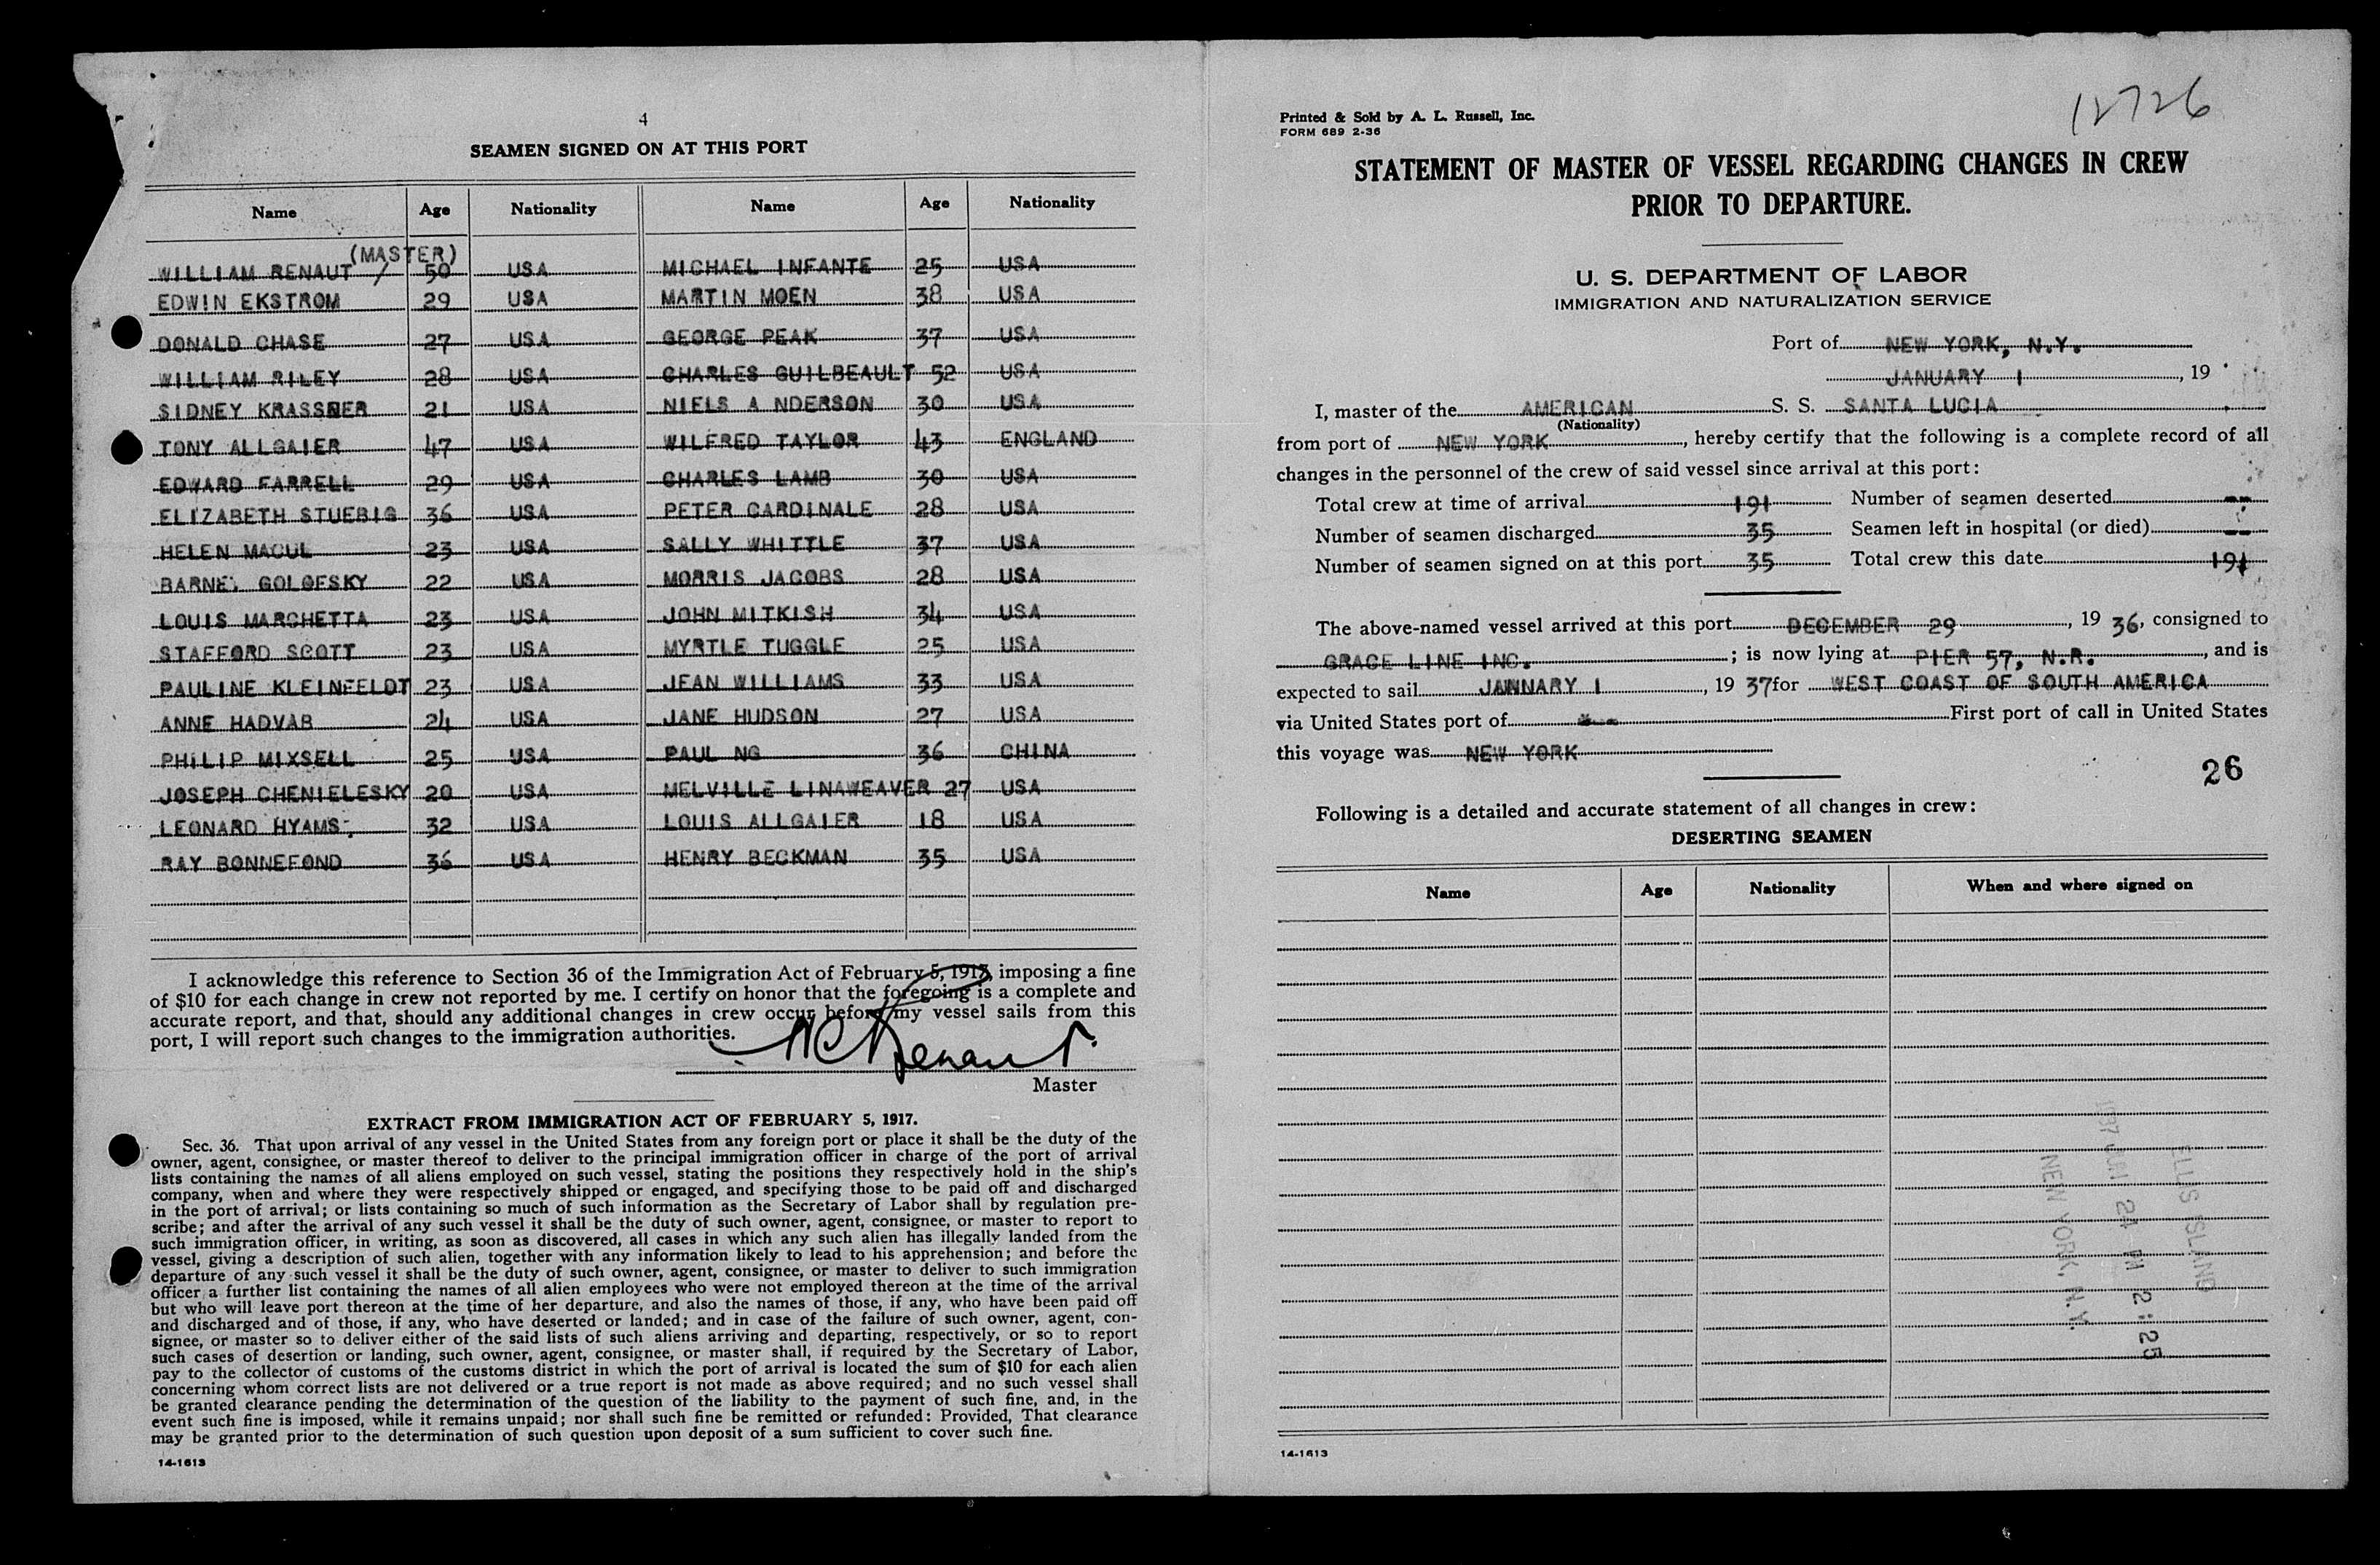 4
SEAMEN SIGNED ON AT THIS PORT
Name Age Nationality Name Age Nationality
(MASTER)
WILLIAM RENAUT / 50 USA MICHAEL INFANTE 25 USA
EDWIN EKSTROM 29 USA MARTIN MOEN 38 USA
DONALD CHASE 27 USA GEORGE PEAK 37 USA
WILLIAM RILEY 28 USA CHARLES GUILBEAULT 52 USA
SIDNEY KRASSNER 21 USA NIELS A NDERSON 30 USA
TONY ALLGAIER 47 USA WILFRED TAYLOR 43 ENGLAND
EDWARD FARRELL 29 USA CHARLES LAMB 30 USA
ELIZABETH STUEBIG 36 USA PETER CARDINALE 28 USA
HELEN MACUL 23 USA SALLY WHITTLE 37 USA
GOLOFSKY 22 USA MORRIS JACOBS 28 USA
LOUIS MARCHETTA 23 USA JOHN MITKISH 34 USA
STAFFORD SCOTT 23 USA MYRTLE TUGGLE 25 USA
PAULINE KLEINFELDT 23 USA JEAN WILLIAMS 33 USA
ANNE HADVAB 24 USA JANE HUDSON 27 USA
PHILIP MIXSELL 25 USA PAUL NG 36 CHINA
JOSEPH CHENIELESKY 20 USA MELVILLE LINAWEAVER 27 USA
LEONARD HYAMS 32 USA LOUIS ALLGAIER 18 USA
RAY BONNEFOND 36 USA HENRY BECKMAN 35 USA
I acknowledge this reference to Section 36 of the Immigration Act of February 5, 1917, imposing a fine
of $10 for each change in crew not reported by me. I certify on honor that the foregoing is a complete and
accurate report, and that, should any additional changes in crew occur before my vessel sails from this
port, I will report such changes to the immigration authorities.
Renaut
Master
EXTRACT FROM IMMIGRATION ACT OF FEBRUARY 5, 1917.
Sec. 36. That upon arrival of any vessel in the United States from any foreign port or place it shall be the duty of the
owner, agent, consignee, or master thereof to deliver to the principal immigration officer in charge of the port of arrival
lists containing the names of all aliens employed on such vessel, stating the positions they respectively hold in the ship's
company, when and where they were respectively shipped or engaged, and specifying those to be paid off and discharged
in the port of arrival; or lists containing so much of such information as the Secretary of Labor shall by regulation pre-
scribe; and after the arrival of any such vessel it shall be the duty of such owner, agent, consignee, or master to report to
such immigration officer, in writing, as soon as discovered, all cases in which any such alien has illegally landed from the
vessel, giving a description of such alien, together with any information likely to lead to his apprehension; and before the
departure of any such vessel it shall be the duty of such owner, agent, consignee, or master to deliver to such immigration
officer a further list containing the names of all alien employees who were not employed thereon at the time of the arrival
but who will leave port thereon at the time of her departure, and also the names of those, if any, who have been paid off
and discharged and of those, if any, who have deserted or landed; and in case of the failure of such owner, agent, con-
signee, or master so to deliver either of the said lists of such aliens arriving and departing, respectively, or so to report
such cases of desertion or landing, such owner, agent, consignee, or master shall, if required by the Secretary of Labor,
pay to the collector of customs of the customs district in which the port of arrival is located the sum of $10 for each alien
concerning whom correct lists are not delivered or a true report is not made as above required; and no such vessel shall
be granted clearance pending the determination of the question of the liability to the payment of such fine, and, in the
event such fine is imposed, while it remains unpaid; nor shall such fine be remitted or refunded: Provided, That clearance
may be granted prior to the determination of such question upon deposit of a sum sufficient to cover such fine.
14-1613
Printed & Sold by A. L. Russell, Inc.
FORM 689 2-36
12726
STATEMENT OF MASTER OF VESSEL REGARDING CHANGES IN CREW
PRIOR TO DEPARTURE.
U. S. DEPARTMENT OF LABOR
IMMIGRATION AND NATURALIZATION SERVICE
Port of NEW YORK, N.Y.
JANUARY 1, 19
I, master of the AMERICAN S. S. SANTA LUCIA
(Nationality)
from port of NEW YORK, hereby certify that the following is a complete record of all
changes in the personnel of the crew of said vessel since arrival at this port:
Total crew at time of arrival 191 Number of seamen deserted --
Number of seamen discharged 35 Seamen left in hospital (or died) --
Number of seamen signed on at this port 35 Total crew this date 191
The above-named vessel arrived at this port DECEMBER 29, 1936, consigned to
GRACE LINE INC.; is now lying at PIER 57, N.R., and is
expected to sail JANNARY 1, 1937 for WEST COAST OF SOUTH AMERICA
via United States port of -- First port of call in United States
this voyage was NEW YORK
26
Following is a detailed and accurate statement of all changes in crew:
DESERTING SEAMEN
Name Age Nationality When and where signed on
ELLIS ISLAND
1937 JAN 24 PM 2:25
NEW YORK, N.Y.
14-1613